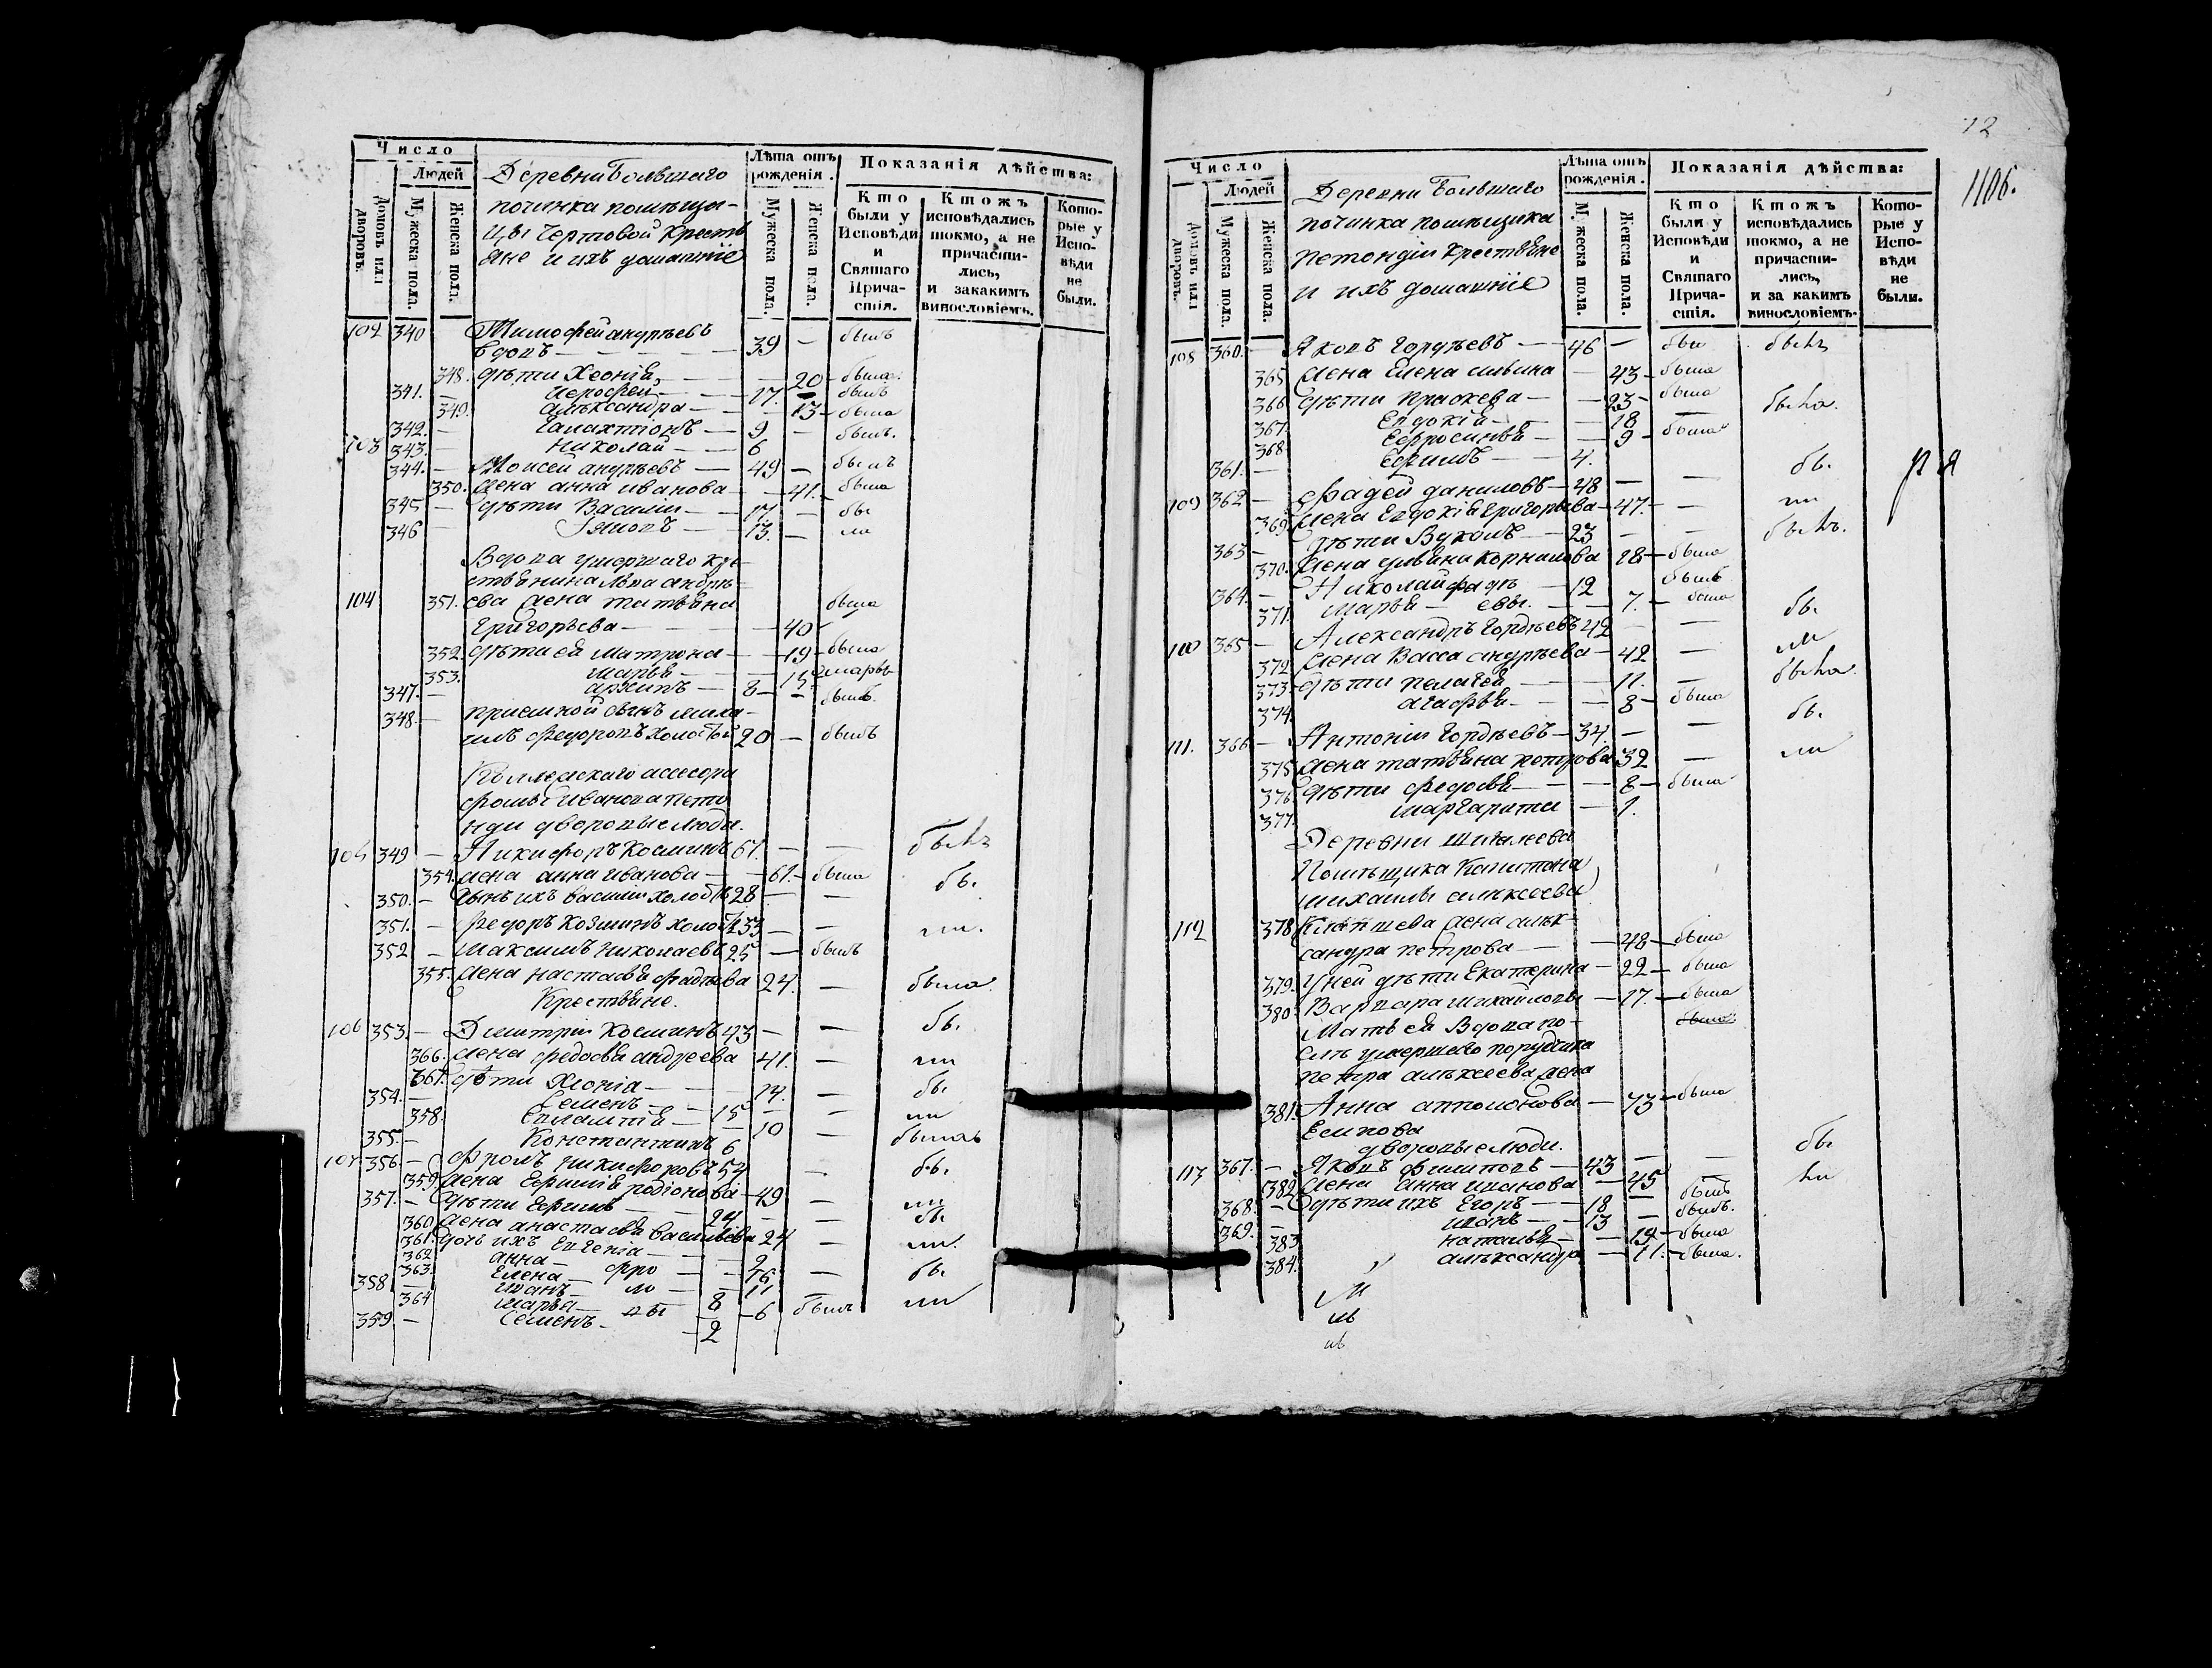 Число
Людей
Домовъ или дворовъ.
Мужеска пола.
Женска пола.
Деревни Большаго
починка помѣщи-
цы Чертовой Кресть
яне и ихъ домашніе
Лѣта отъ рожденія.
Мужеска пола.
Женска пола.
Показанія дѣйства:
Кто были у Исповѣди и Святаго Прича-стія.
Ктожъ исповѣдались токмо, а не причасти-лись, и закакимъ винословіемъ.
Кото-рые у Испо-вѣди не были.
102 340 Тимофей андрѣевъ
вдовъ — 39 — былъ
348. дѣти Хеонія — 20 — была
341. — иерофей — 17. — былъ
349. александра — 13 — была
342. — Галактіонъ — 9 — былъ.
343. — николай — 6
103 344. — Моисей андрѣевъ — 49 — былъ
350. жена анна иванова — 41. — была
345 — дѣти Василии — 17. — бы
346 — 13. — ли
Вдова умершаго кре-
стьянина Льва андрѣ-
104 351. ева жена татьяна была
Григорьева — 40 —
352. дѣти ея матрона — 19 — была
353. марья — 15
347. — архипъ — 8 — былъ.
348. — приемной сынъ миха-
илъ федоровъ холостой 20 — былъ
Коллежскаго ассесора
фомы Иванова Пето
нди дворовые люди.
105 349 — Никифоръ Косминъ 67. — —
354. жена анна иванова — 61. — была
350. — сынъ ихъ василіи холостъ 28 — — бы.
351. — федоръ Козминъ холостъ 53 — — ли.
352 — Максимъ николаевъ 25 — былъ
355. жена настасья фадѣева 24. — была
Крестьяне.
106 353. — Дмитріи Косминъ 43 — — бы.
366. жена федосья андреева 41. — ли
367. дѣти Хіонія — 17. — бы
354. — Семенъ — 15 — —
358. Евлампія — 10 — ли
355. — Константинъ 6
107 356. — фролъ никифоровъ 52 — бы.
359. жена Ефимія родіонова 49 —
357. — дѣти Ефимъ — 24 — — ли
360 жена анастасья васильева 24 — бы
361. дочь ихъ Евгенія — 2 ли.
362 анна — фро — 16 — бы
363. Елена — ло — 11 —
358 — иванъ — 8
364 марья — вы — 6 былъ ли
359. — Семенъ — 2
12
1106.
Число
Людей
Домовъ или дворовъ.
Мужеска пола.
Женска пола.
Деревни Большаго
починка помѣщика
Петондіи Крестьяне
и ихъ домашніе
Лѣта отъ рожденія.
Мужеска пола.
Женска пола.
Показанія дѣйства:
Кто были у Исповѣди и Святаго Прича-стія.
Ктожъ исповѣдались токмо, а не причасти-лись, и за какимъ винословіемъ.
Кото-рые у Испо-вѣди не были.
108 360. — Яковъ Гордѣевъ — 46 —
365 жена Елена — 43 — была
366 дѣти — 23 — была
367. Евдокія — 18 —
368 Ефросинья — 9 — была
361. — Ефимъ — 4.
109 362 — фадей даниловъ — 48 — — бы.
369 жена Евдокія Григорьева — 47. — ли
363 — дѣти Вуколъ — 23 — —
370. жена ульяна корнилова 18 — была
364. — Николай фадѣ — 12 былъ
371. марья — евы. — 7. — была
110 365 — Александръ Гордѣевъ 42 — — бы
372 жена Васса андрѣева — 42 — ли
373 — дѣти пелагея — 11. —
374. агафья — 8 — была
111. 366 — Антоніи Гордѣевъ — 34. — — бы.
375 жена татьяна петрова 32 — ли
376. дѣти федосья — 8 — была
377. маргарита — 1.
Деревни
Помѣщика Капитана
михаилы алексеева
112 378 жена алек-
сандра петрова — 48 — была
379. У ней дѣти Екатерина — 22 — была
380. Варвара михайловы — 17. — была
Мать ея Вдова по-
слѣ умершаго порутчика
петра алексеева жена
381. Анна — 73 — была
Есипова
дворовые люди.
113 367. — Яковъ филиповъ — 43 — — бы
382 жена анна иванова — 45 — ли
368. — дѣти ихъ Егоръ — 18 — былъ
369. — иванъ — 13 — былъ.
383 наталья — 19 — была
384. александра — 11. — была.